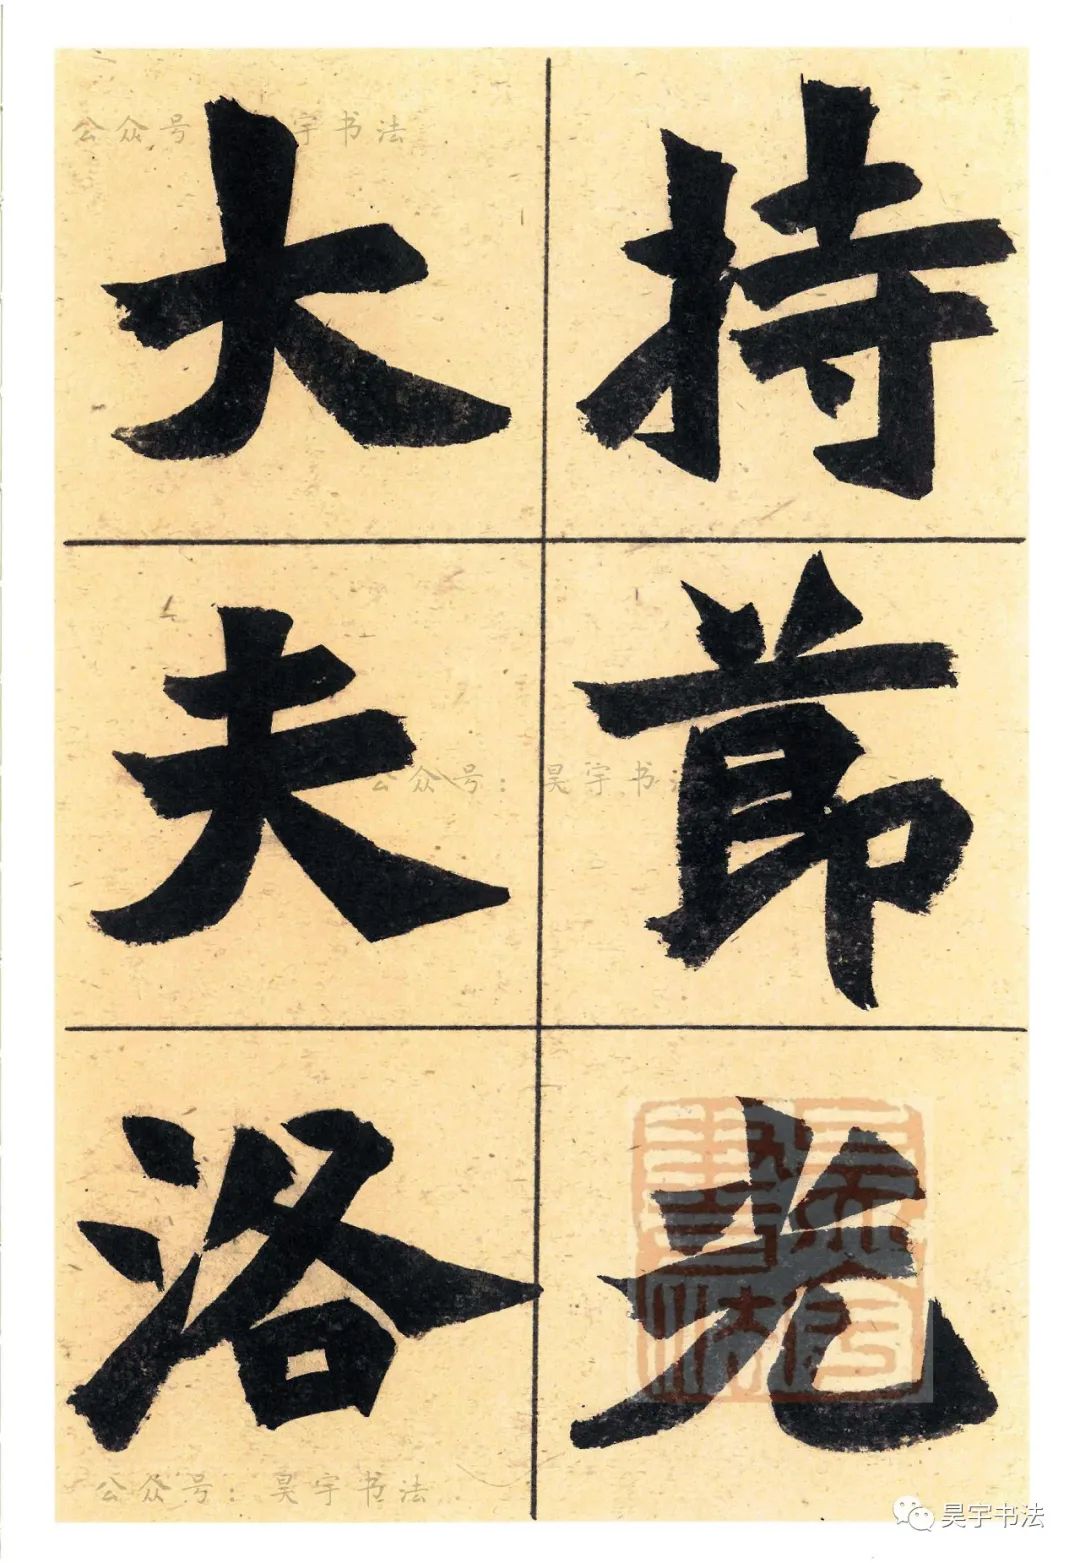 持節光
大夫洛
公众号 宇书法
公众号：昊宇书法
公众号：昊宇书法
昊宇书法